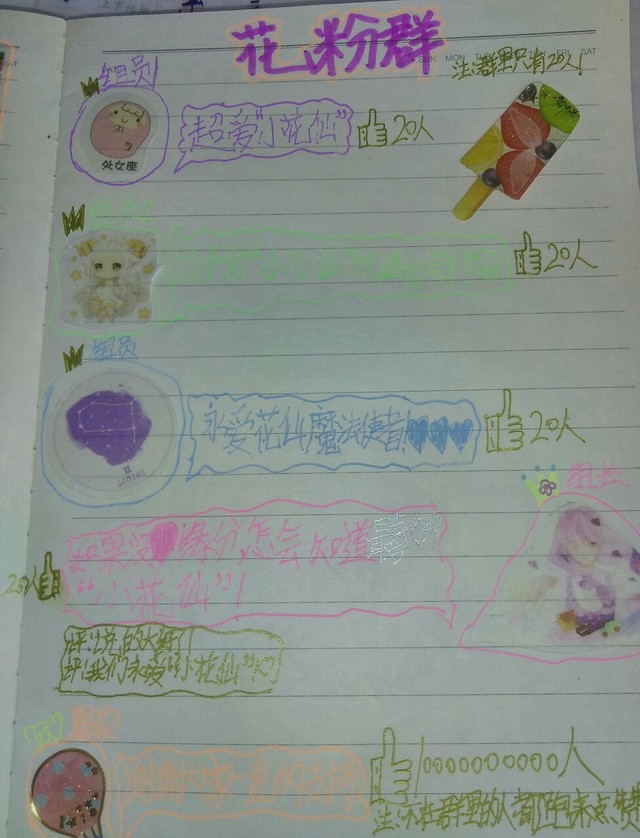 花粉群
SUN MON TUE FRI SAT
注:群里只有20人!
组员
处女座
超爱“小花仙”
20人
20人
组员
永爱花仙魔法使者!
GEMINI
20人
组长
如果没 缘分怎会知道
“小花仙”!
20人
评:说的太好了!
评:我们永爱“小花仙”
10000000000人
注:不在群里的人都跑来点赞